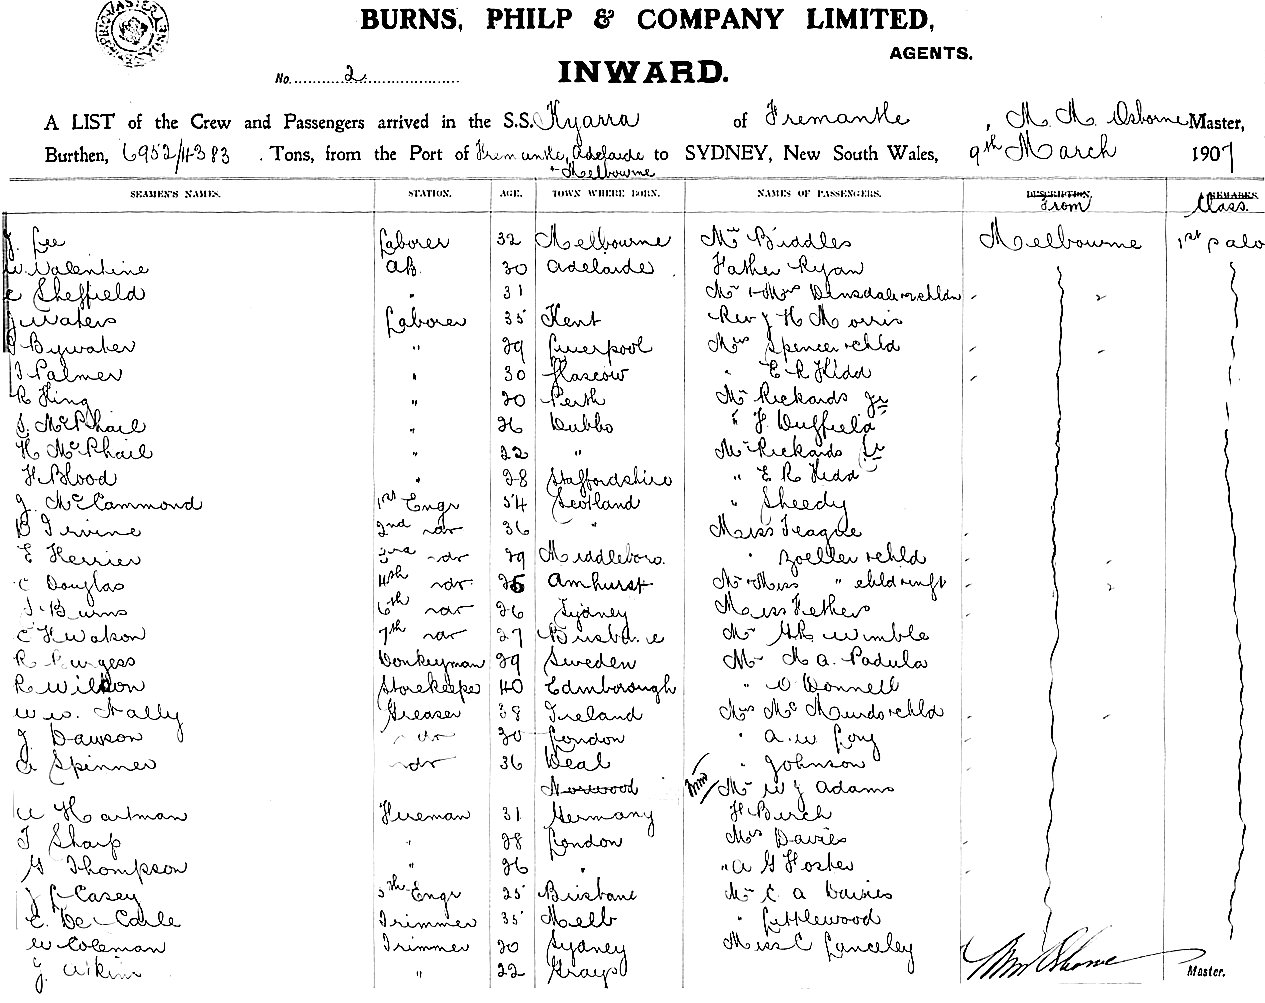 BURNS, PHILP & COMPANY LIMITED,
AGENTS.
No. 2
INWARD.
A LIST of the Crew and Passengers arrived in the S.S. Kyarra of Fremantle, Osborne Master,
Burthen, 6952/4383. Tons, from the Port of Fremantle, Adelaide to SYDNEY, New South Wales, 9th March 1907
& Melbourne
SEAMEN'S NAMES. STATION. AGE. TOWN WHERE BORN. NAMES OF PASSENGERS. DESCRIPTION, REMARKS.
From Class.
J. Lee Laborer 32 Melbourne Mr Biddles Melbourne 1st
W. Valentine AB. 30 Adelaide Father Ryan
Sheffield " 31 Mr & Mrs Dinsdale & chldn
J Waters Laborer 35 Kent Rev J H Morris
Bywater " 29 Liverpool Mrs Spencer & chld
Palmer " 30 Glascow " E R Kidd
R King " 20 Perth Mr Rickards Jr
S. McPhail " 26 Dubbo " F Duffield
H McPhail " 22 " Mr Rickards Sr
H Blood " 28 Staffordshire " E R Kidd
J. McCammond 1st Engr 54 Scotland " Sheedy
Irvine 2nd do 36 " Miss Teague
E Herrier 3rd do 29 Middleboro. " Zoeller & chld
C Douglas 4th do 25 Amhurst Mr & Miss " chld & inft
Burns 6th do 26 Sydney Miss Fethers
C H Watson 7th do 27 Brisbane Mr Wimble
R Burgess Donkeyman 29 Sweden Mr Padula
R Wilson Storekeeper 40 Edinborough " O Donnell
W W. Nally Greaser 38 Ireland Mrs McMurdo & chld
J. Dawson do 30 London " A. W
A Spinner do 36 Deal " Johnson
Norwood Mr W J Adams
W Hartman Fireman 31 Germany H Birch
T Sharp " 28 London Mrs Davies
G Thompson " 26 " " A G Foster
J L Casey 5th Engr 25 Brisbane Mr C A Davies
E. De Carle Trimmer 35 Melb " Littlewood
W Coleman Trimmer 20 Sydney Miss C Lanceley
J. Atkins " 22 Grays Osborne Master.